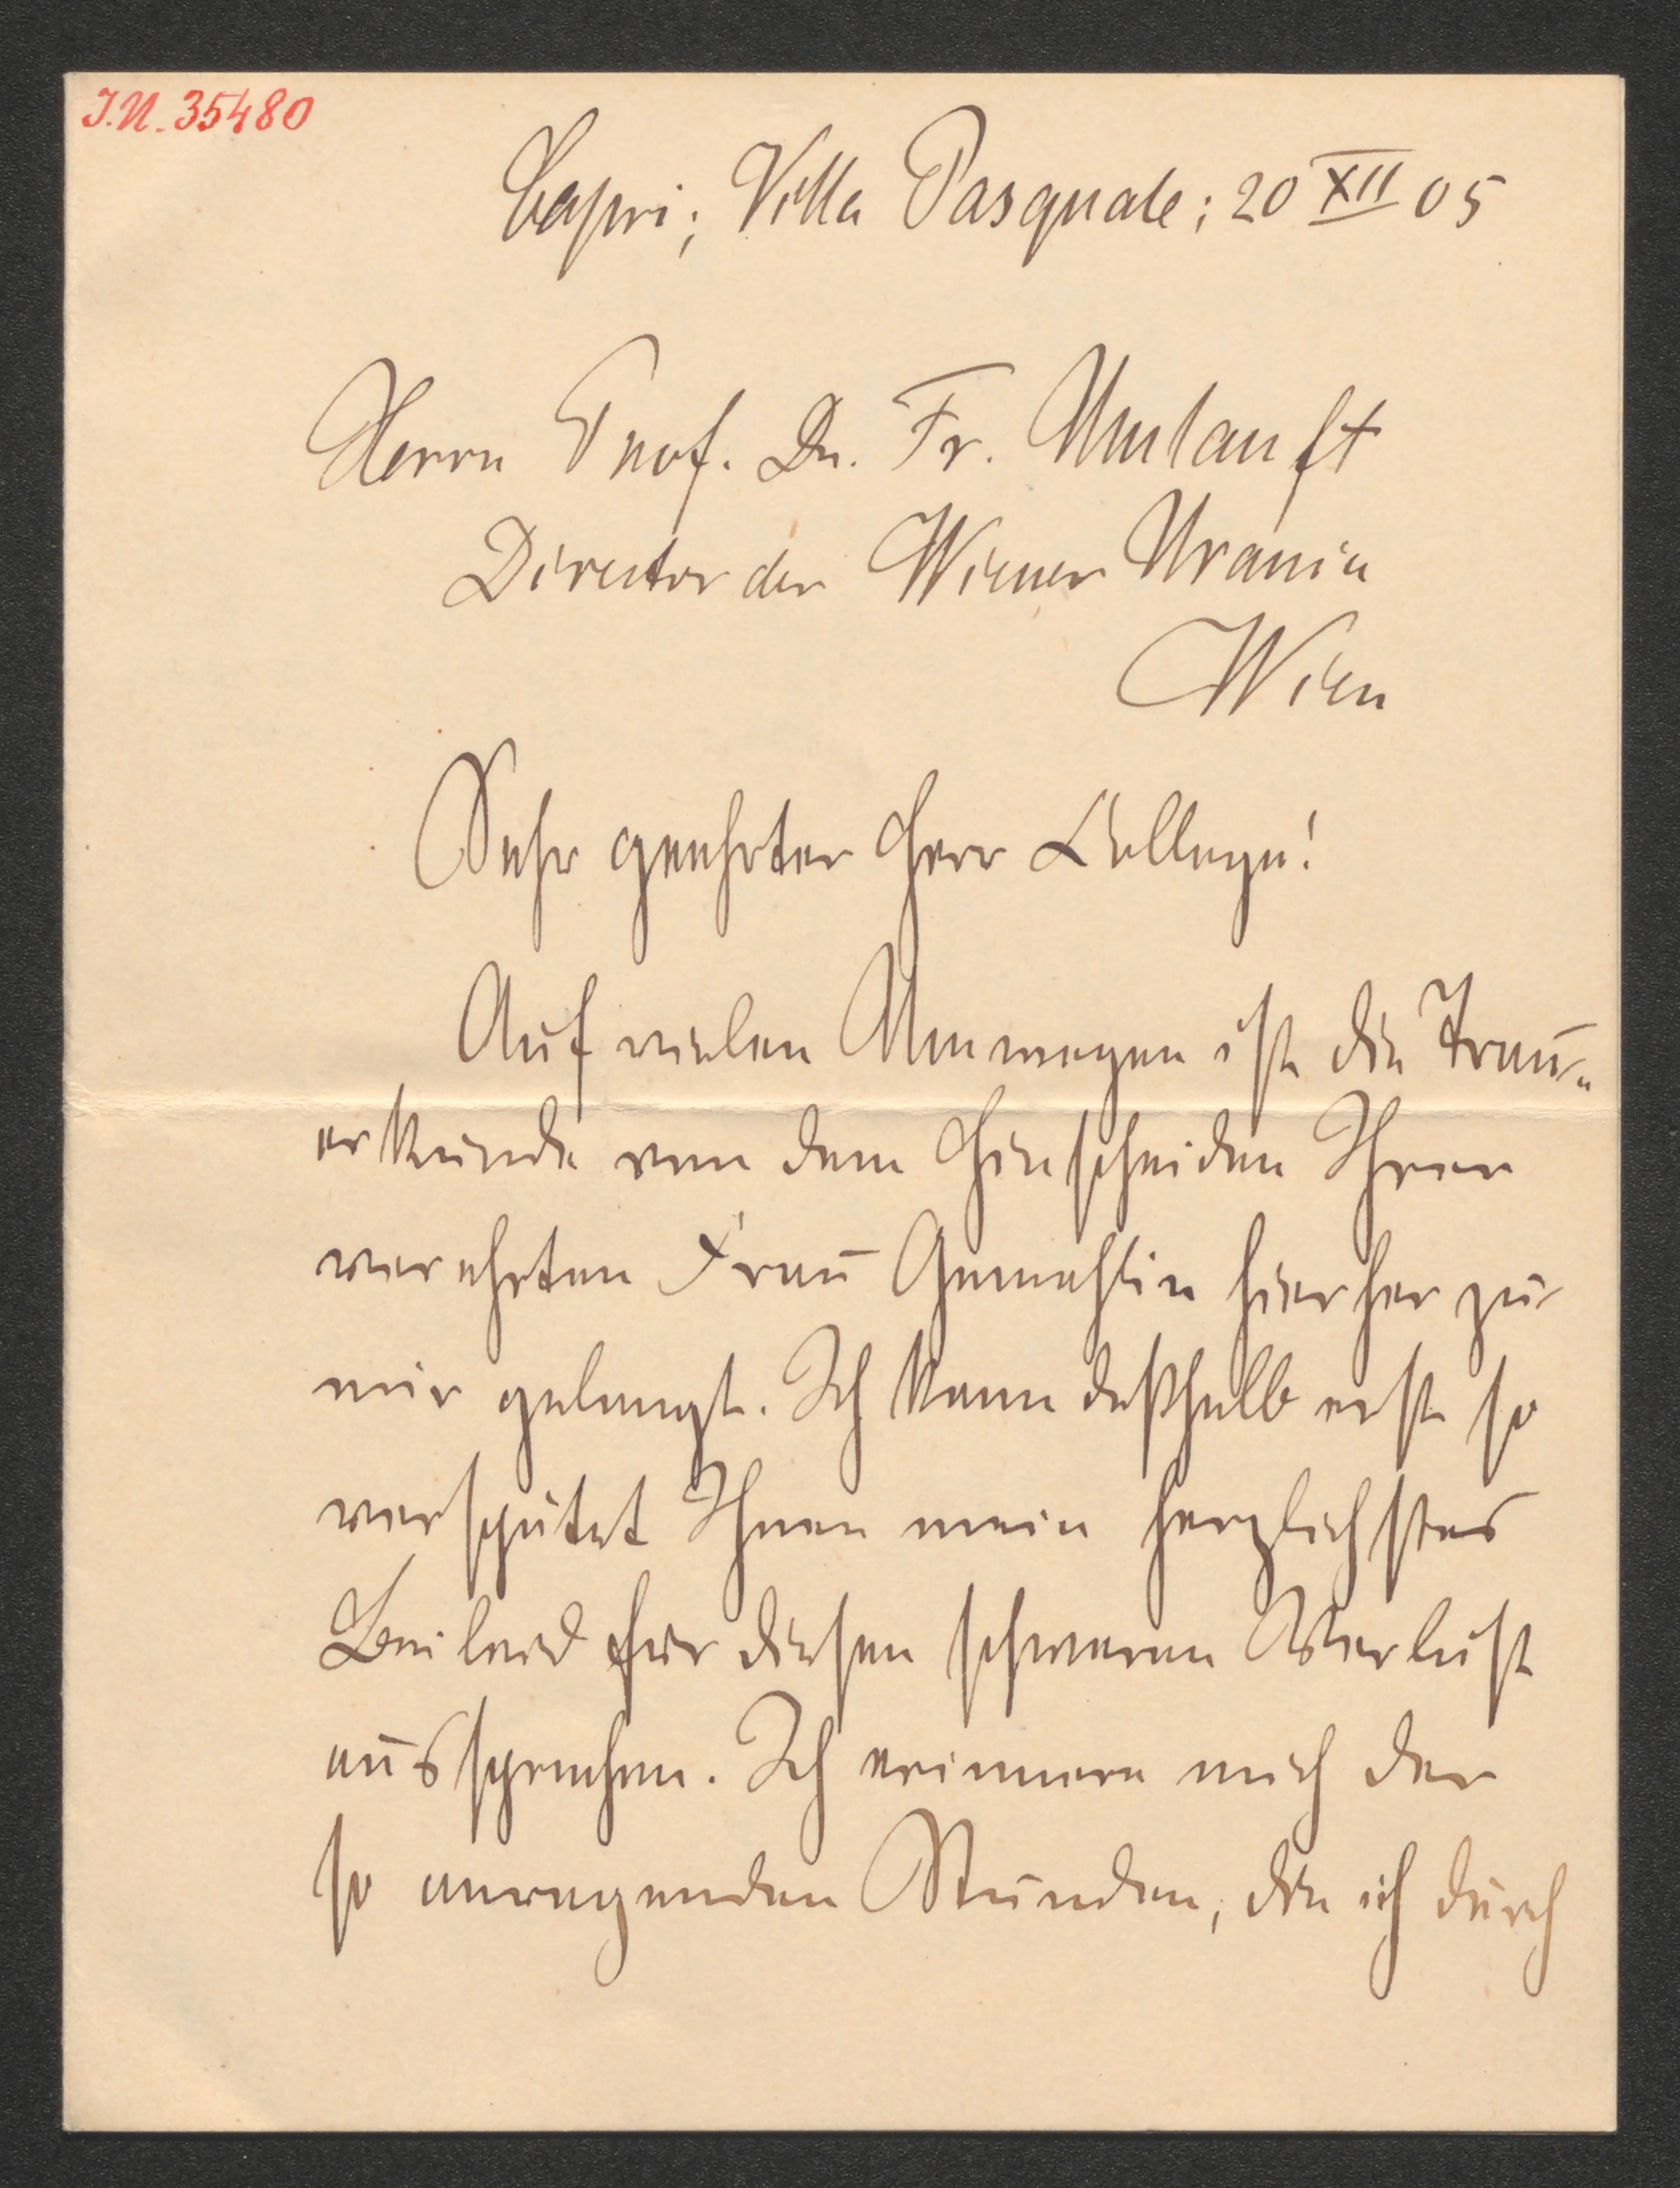 J.N. 35480
Capri; Villa Pasquale; 20 XII 05
Herrn Prof. Dr. Fr. Umlauft
Director der Wiener Urania
Wien
Sehr geehrter Herr College!
Auf vielen Umwegen ist die Trau-
erkunde von dem Hinscheiden Ihrer
verehrten Frau Gemahlin hierher zu
mir gelangt. Ich kann deßhalb erst so
verspätet Ihnen mein herzlichstes
Beileid für diesen schweren Verlust
aussprechen. Ich erinnere mich der
so anregenden Stunden, die ich durch